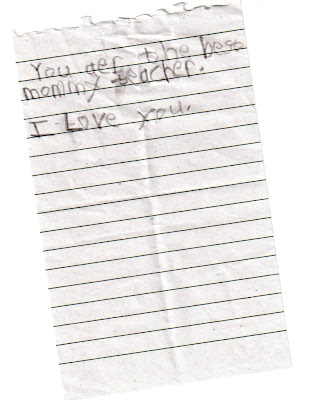 You aer the best
mommy teacher.
I Love you.